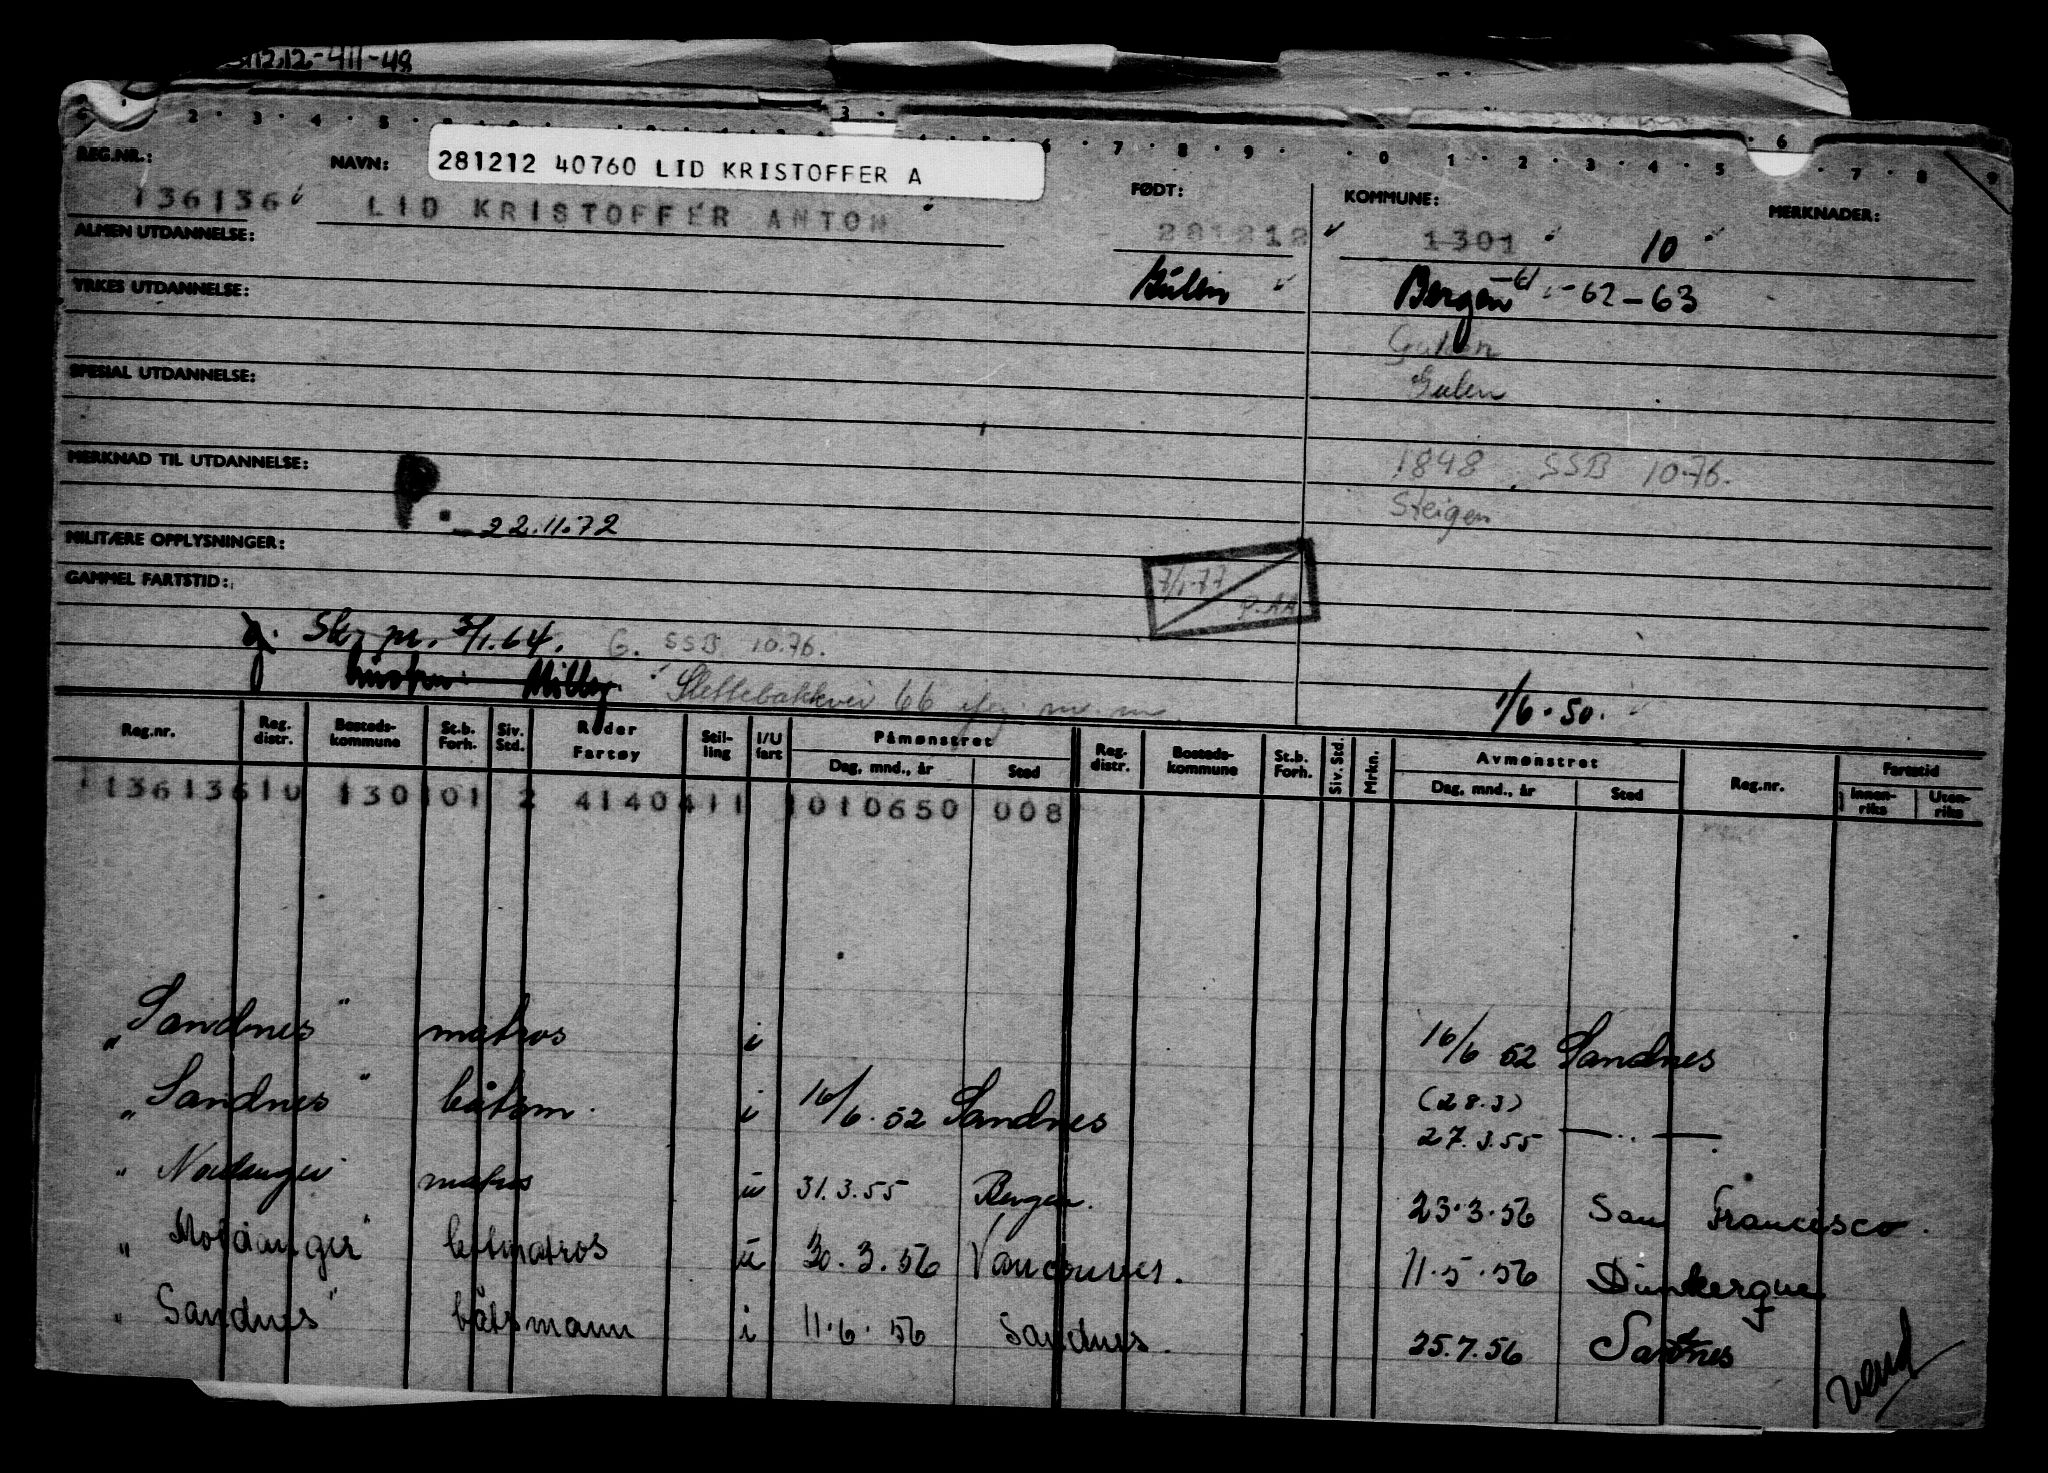 281212 40760 LID KRISTOFFER A
REG.NR.: NAVN: FØDT: KOMMUNE: MERKNADER:
136136 LID KRISTOFFER ANTON 281212 1301 10
ALMEN UTDANNELSE:
Bergen -61 -62-63
YRKES UTDANNELSE:
Gulen
SPESIAL UTDANNELSE: Gulen
MERKNAD TIL UTDANNELSE: 1848 SSB 10.76.
P. - 22.11.72 Steigen
MILITÆRE OPPLYSNINGER:
GAMMEL FARTSTID:
7/1-77
g. Skj. pr. 3/1.64. G. SSB 10.76.
Slettebakkvei 66
1/6.50.
Reg.nr. Reg. distr. Bosteds-kommune St.b. Forh. Siv. Std. Reder Fartøy Stil-ling I/U fart Påmønstret Dag, mnd., år Sted Reg. distr. Bosteds-kommune St.b. Forh. Siv. Std. Mrkn. Avmønstret Dag, mnd., år Sted Reg.nr. Fartstid Innen-riks Uten-riks
113613610 130101 2 4140411 1010650 008
"Sandnes" matros i 16/6 52 Sandnes
"Sandnes" båtsm. i 16/6.52 Sandnes (28.3) 27.3.55 — " —
matros u 31.3.55 Bergen. 23.3.56 San Francisco.
" u 30.3.56 Vancouver. 11.5.56 Dunkerque
"Sandnes" båtsmann i 11.6.56 Sandnes. 25.7.56 Sandnes
vend